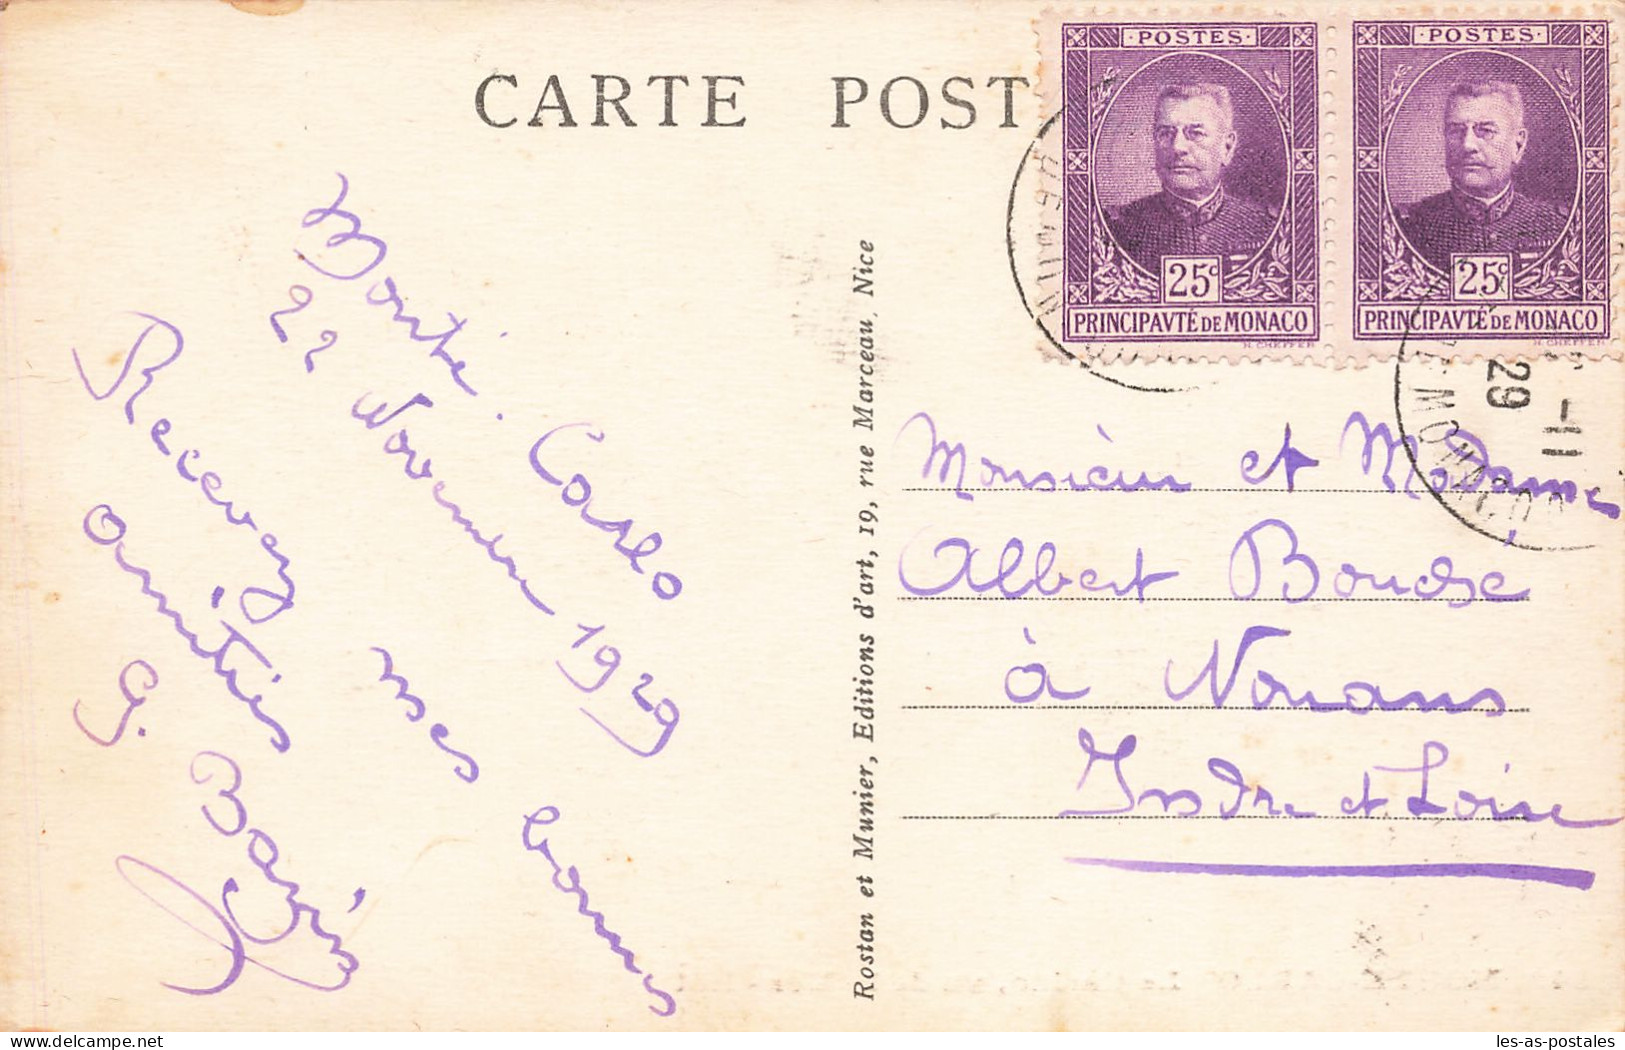 CARTE POST
· POSTES ·
25c
PRINCIPAVTÉ DE MONACO
H. CHEFFER
· POSTES ·
25c
PRINCIPAVTÉ DE MONACO
H. CHEFFER
-11
29
Monte-Carlo
22 Novembre 1929
Recevez mes bonnes
amitiés
G.
Rostan et Munier, Editions d'art, 19, rue Marceau, Nice
Monsieur et Madame
Albert
à Nouans
Indre et Loire
Delcampe.net
les-as-postales